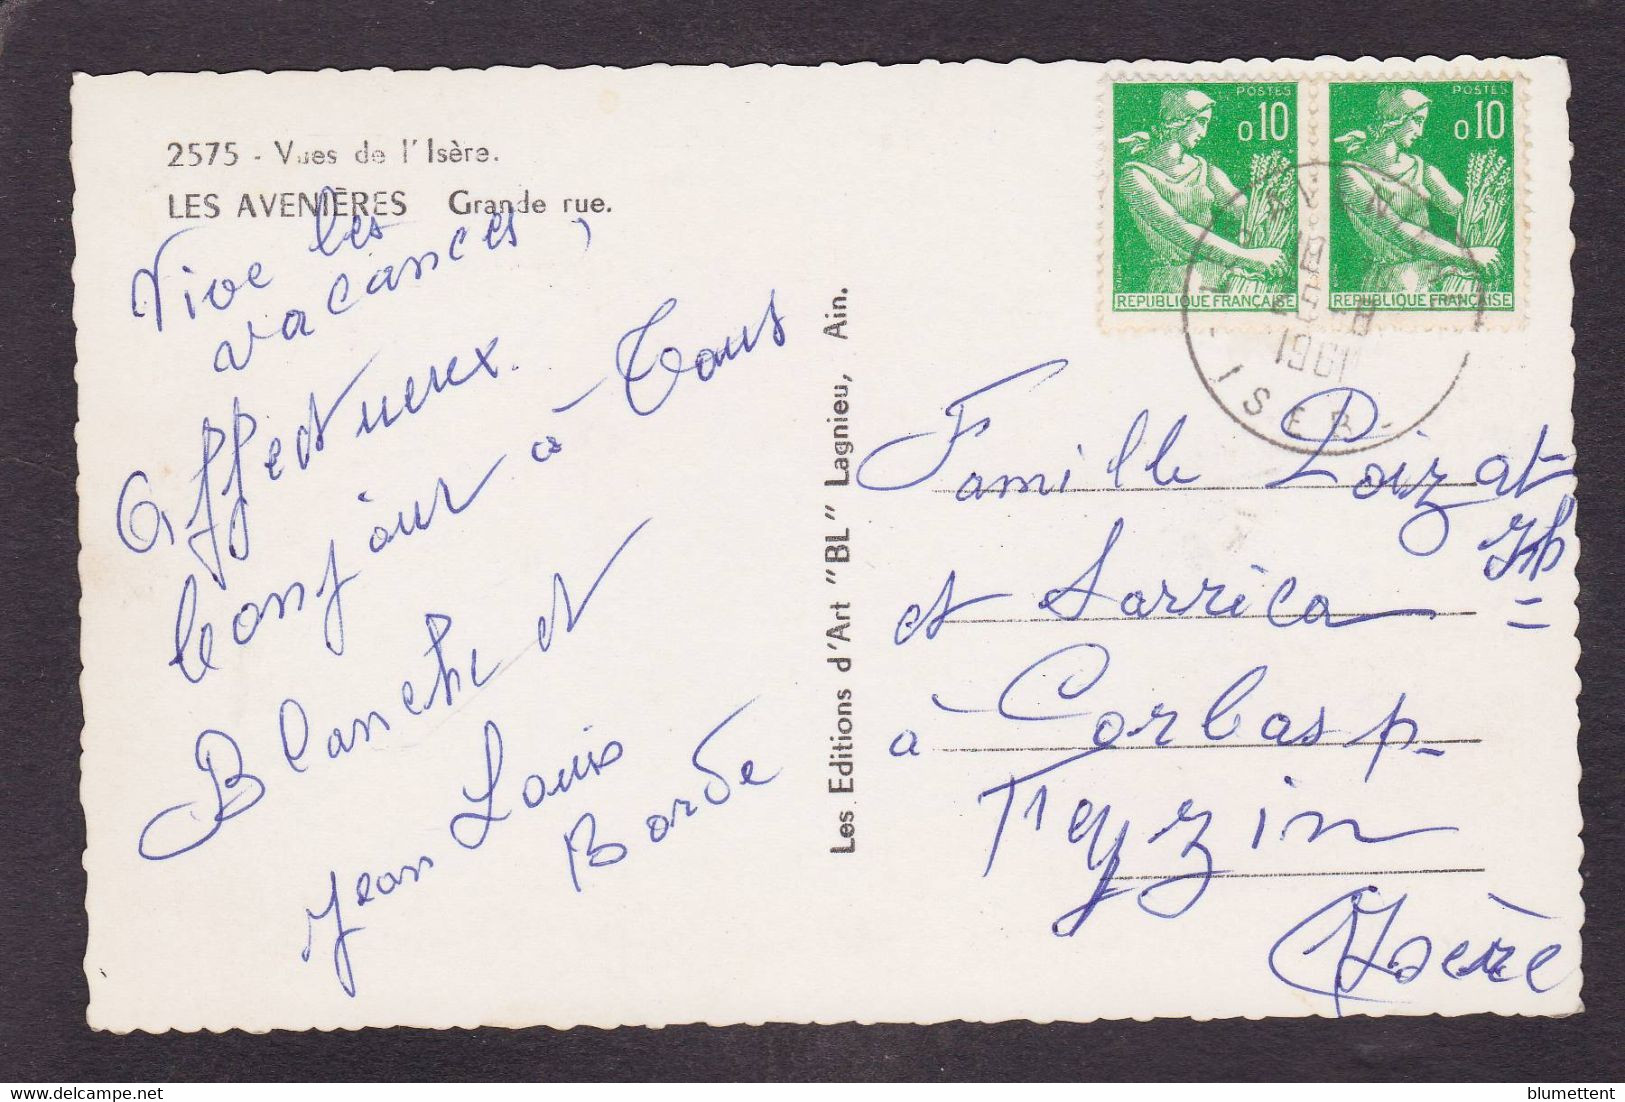 2575 - Vues de l'Isère.
LES AVENIÈRES Grande rue.
Vive les
vacances,
Affectueux
bonjour à Tous
Blanche et
Jean Louis
Borde
Les Editions d'Art "BL" Lagnieu, Ain.
POSTES
0,10
REPUBLIQUE FRANÇAISE
POSTES
0,10
REPUBLIQUE FRANÇAISE
18 H
1961
ISERE
Famille Loizat
Jph
et Sarrica
à Corbas p.
Feyzin
Isère
blumettent